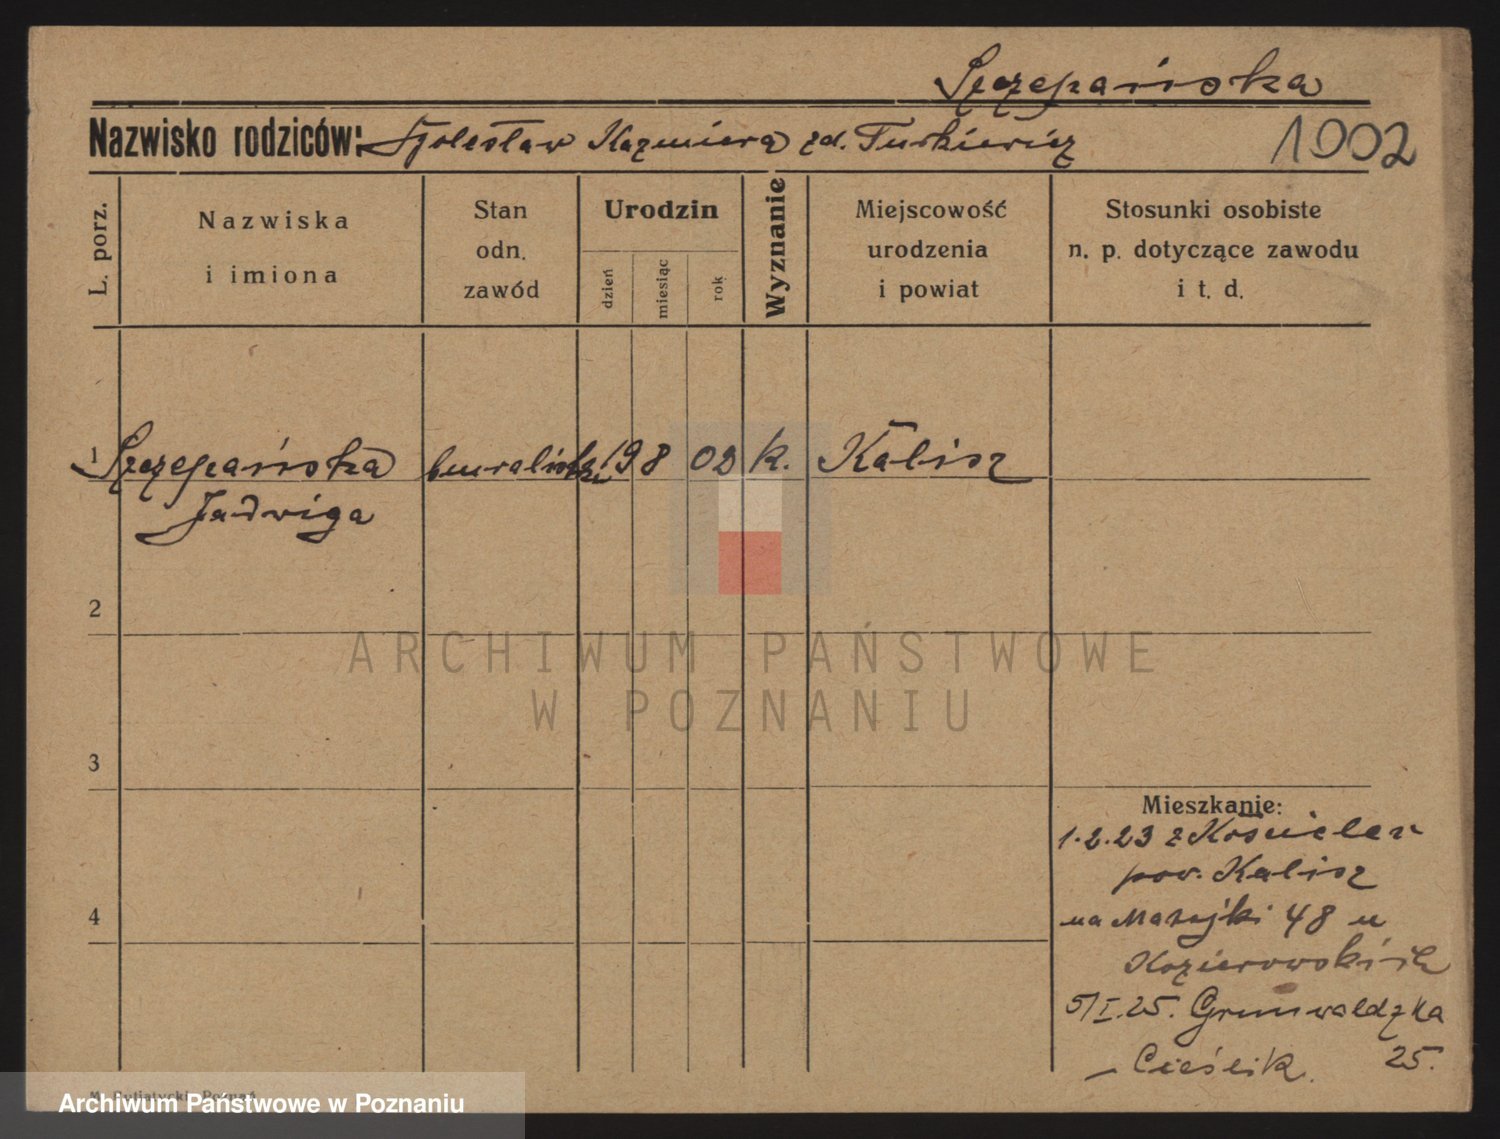 Szczepańska
Nazwisko rodziców: Bolesław Kazmiera zd. Turkiewicz
1902
L. porz.
Nazwiska
i imiona
Stan
odn.
zawód
Urodzin
dzień
miesiąc
rok
Wyznanie
Miejscowość
urodzenia
i powiat
Stosunki osobiste
n. p. dotyczące zawodu
i t. d.
1 Szczepańska biuralistka 19 8 02 k. Kalisz
Jadwiga
2
ARCHIWUM PAŃSTWOWE
W POZNANIU
3
Mieszkanie:
1.2.23 z Kościelec
pow. Kalisz
4
na Matejki 48 u
Kozierowskich
5/I.25. Grunwaldzka
25.
– Cieślik.
M. Putiatycki, Poznań
Archiwum Państwowe w Poznaniu